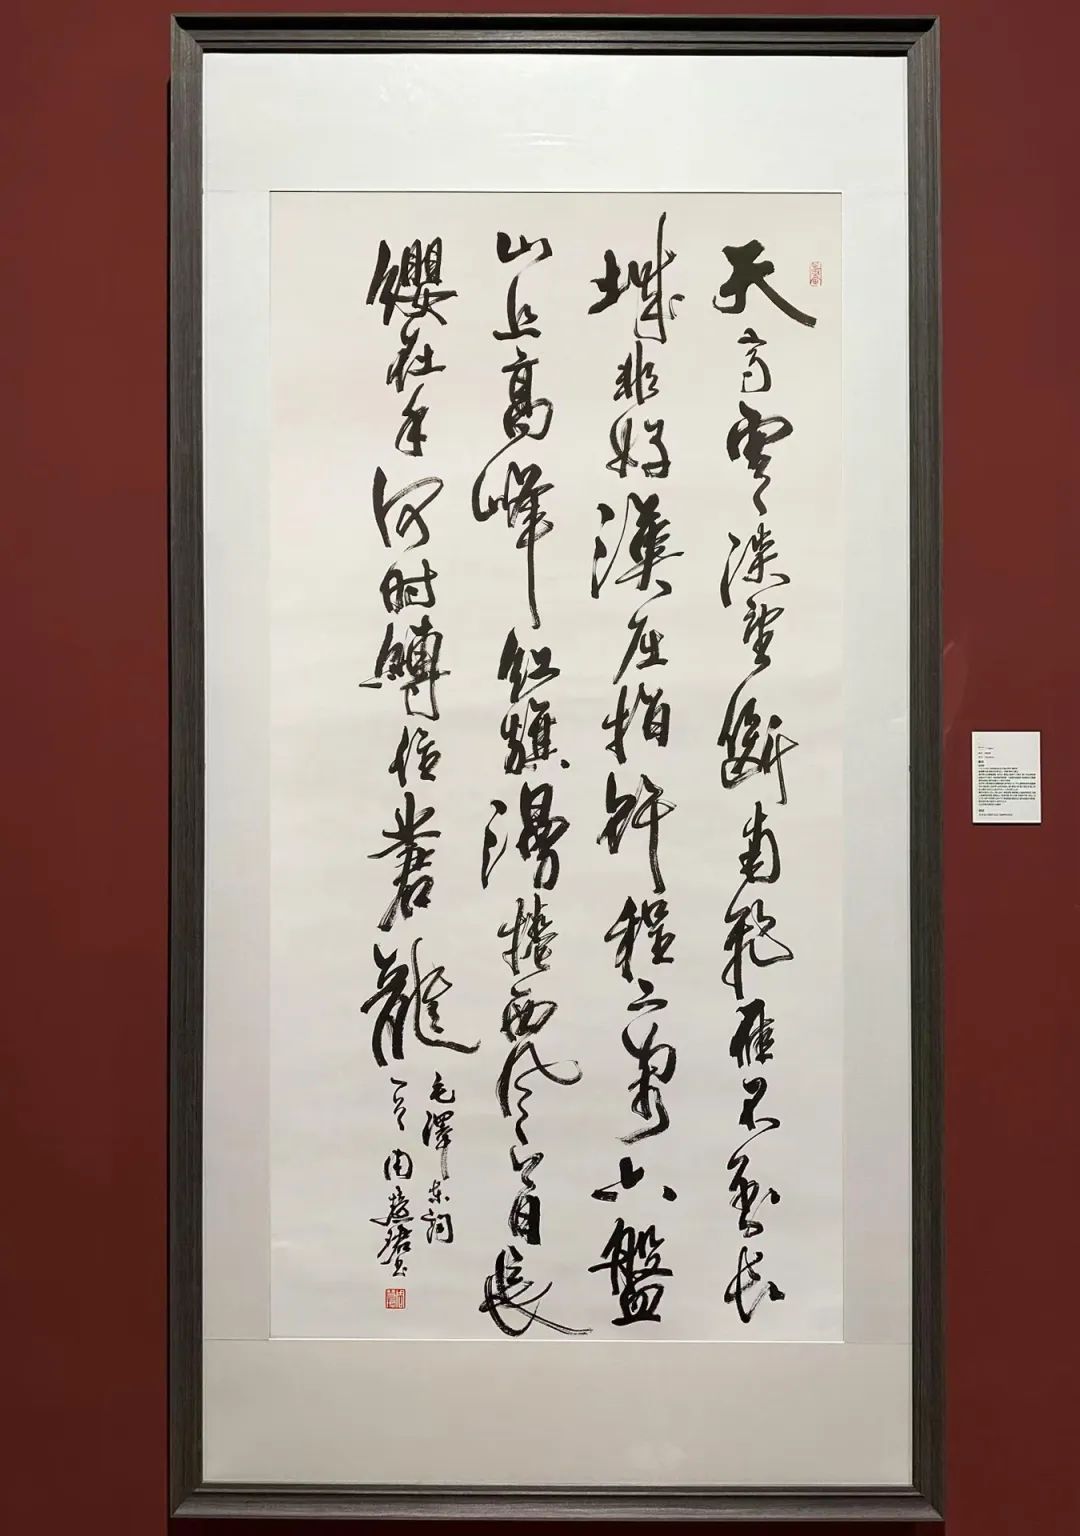 天高雲淡望斷南飛雁不到長
城非好漢屈指行程二萬六盤
山上高峰紅旗漫捲西風今日長
纓在手何时縛住蒼龍
毛澤东詞
一首周慧珺書